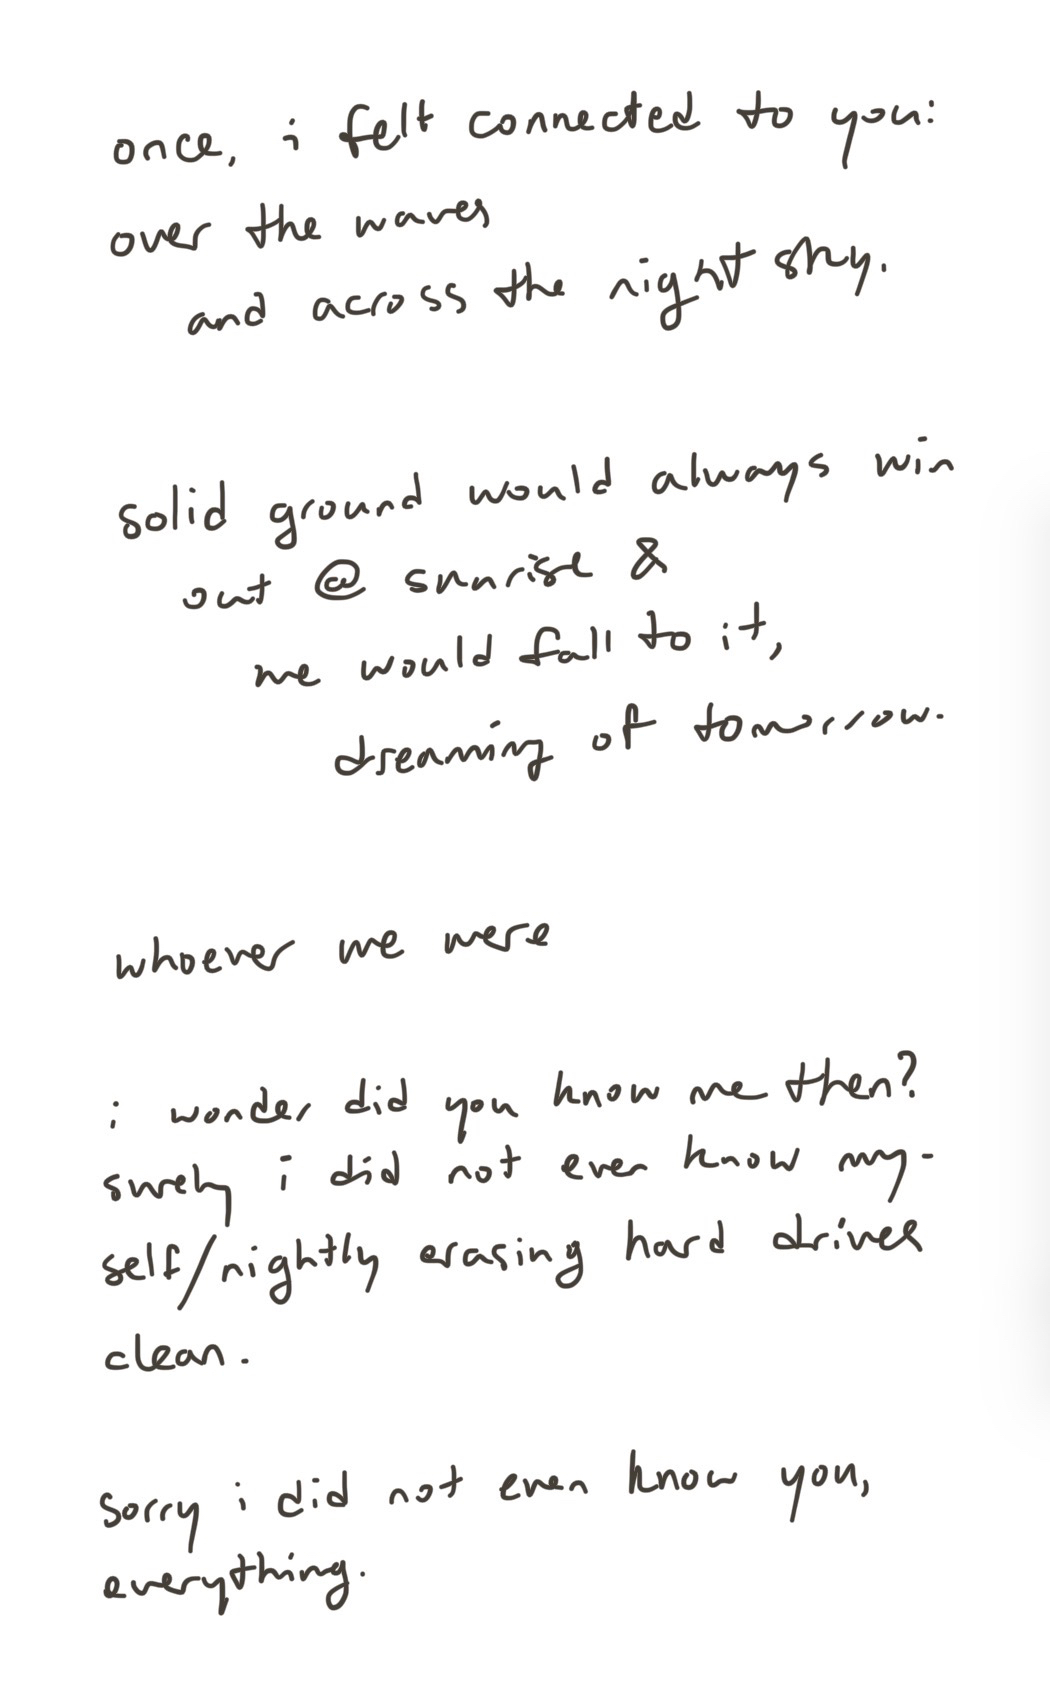 once, i felt connected to you:
over the waves
and across the night sky.
solid ground would always win
out @ sunrise &
we would fall to it,
dreaming of tomorrow.
whoever we were
i wonder did you know me then?
surely i did not even know my-
self/nightly erasing hard drives
clean.
Sorry i did not even know you,
everything.